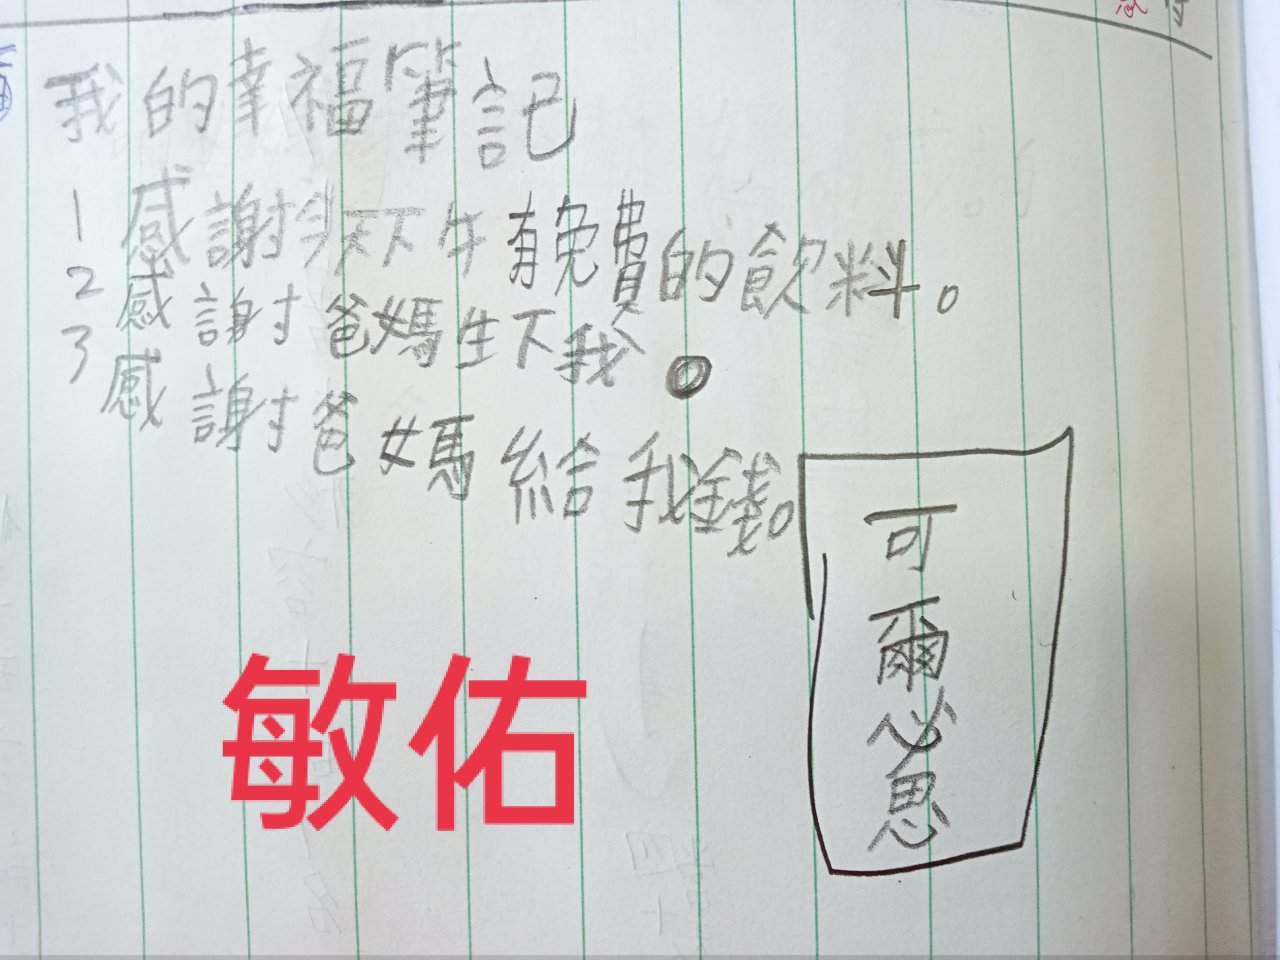 我的幸福筆記
1 感謝今天下午有免費的飲料。
2 感謝爸媽生下我。
3 感謝爸媽給我錢。
可爾必思
敏佑